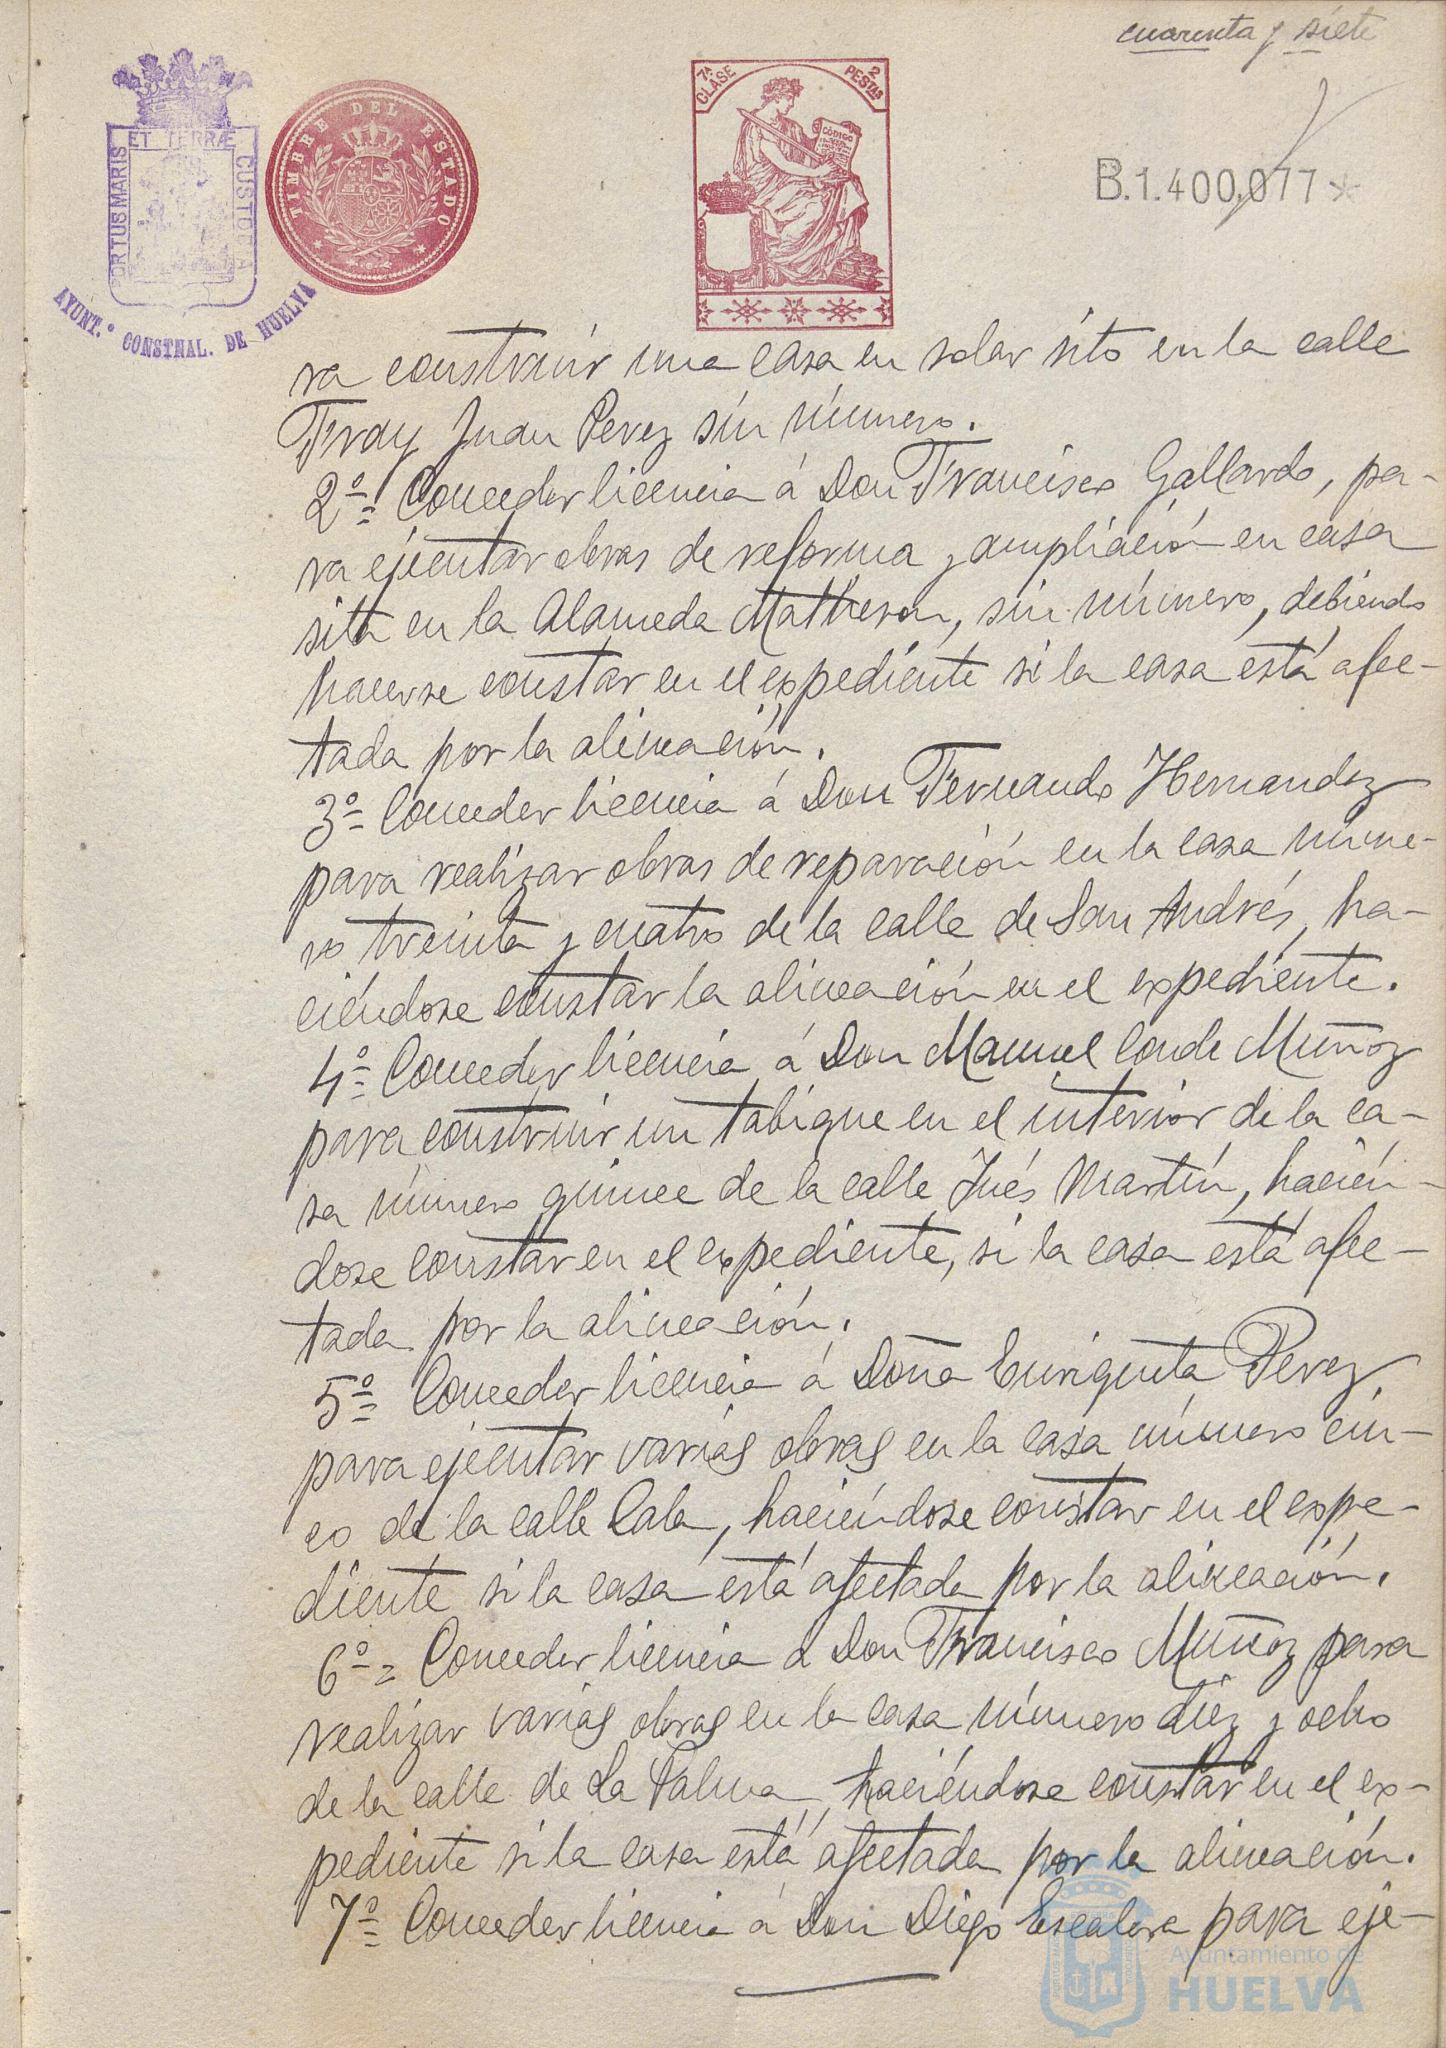 cuarenta y siete
PORTUS MARIS
ET TERRÆ
CUSTODIA
AYUNT.º CONSTNAL. DE HUELVA
TIMBRE DEL ESTADO
7ª CLASE
2 PESTAS
CÓDIGO
B.1.400,077*
ra construir una casa en solar sito en la calle
Fray Juan Perez sin número.
2º= Conceder licencia á Don Francisco Gallardo, pa-
ra ejecutar obras de reforma y ampliación en casa
sita en la Alameda Matheson, sin número, debiendo
hacerse constar en el expediente si la casa está afec-
tada por la alineación.
3º= Conceder licencia á Don Fernando Hernandez
para realizar obras de reparación en la casa núme-
ro treinta y cuatro de la calle de San Andrés, ha-
ciéndose constar la alineación en el expediente.
4º= Conceder licencia á Don Manuel Conde Muñoz
para construir un tabique en el interior de la ca-
sa número quince de la calle Inés Martín, hacién-
dose constar en el expediente, si la casa está afec-
tada por la alineación.
5º= Conceder licencia á Doña Enriqueta Perez
para ejecutar varias obras en la casa número cin-
co de la calle Cala, haciéndose constar en el expe-
diente si la casa está afectada por la alineación.
6º= Conceder licencia á Don Francisco Muñoz para
realizar varias obras en la casa número diez y ocho
de la calle de La Palma, haciéndose constar en el ex-
pediente si la casa está afectada por la alineación.
7º= Conceder licencia á Don Diego Escalera para eje-
Ayuntamiento de
HUELVA